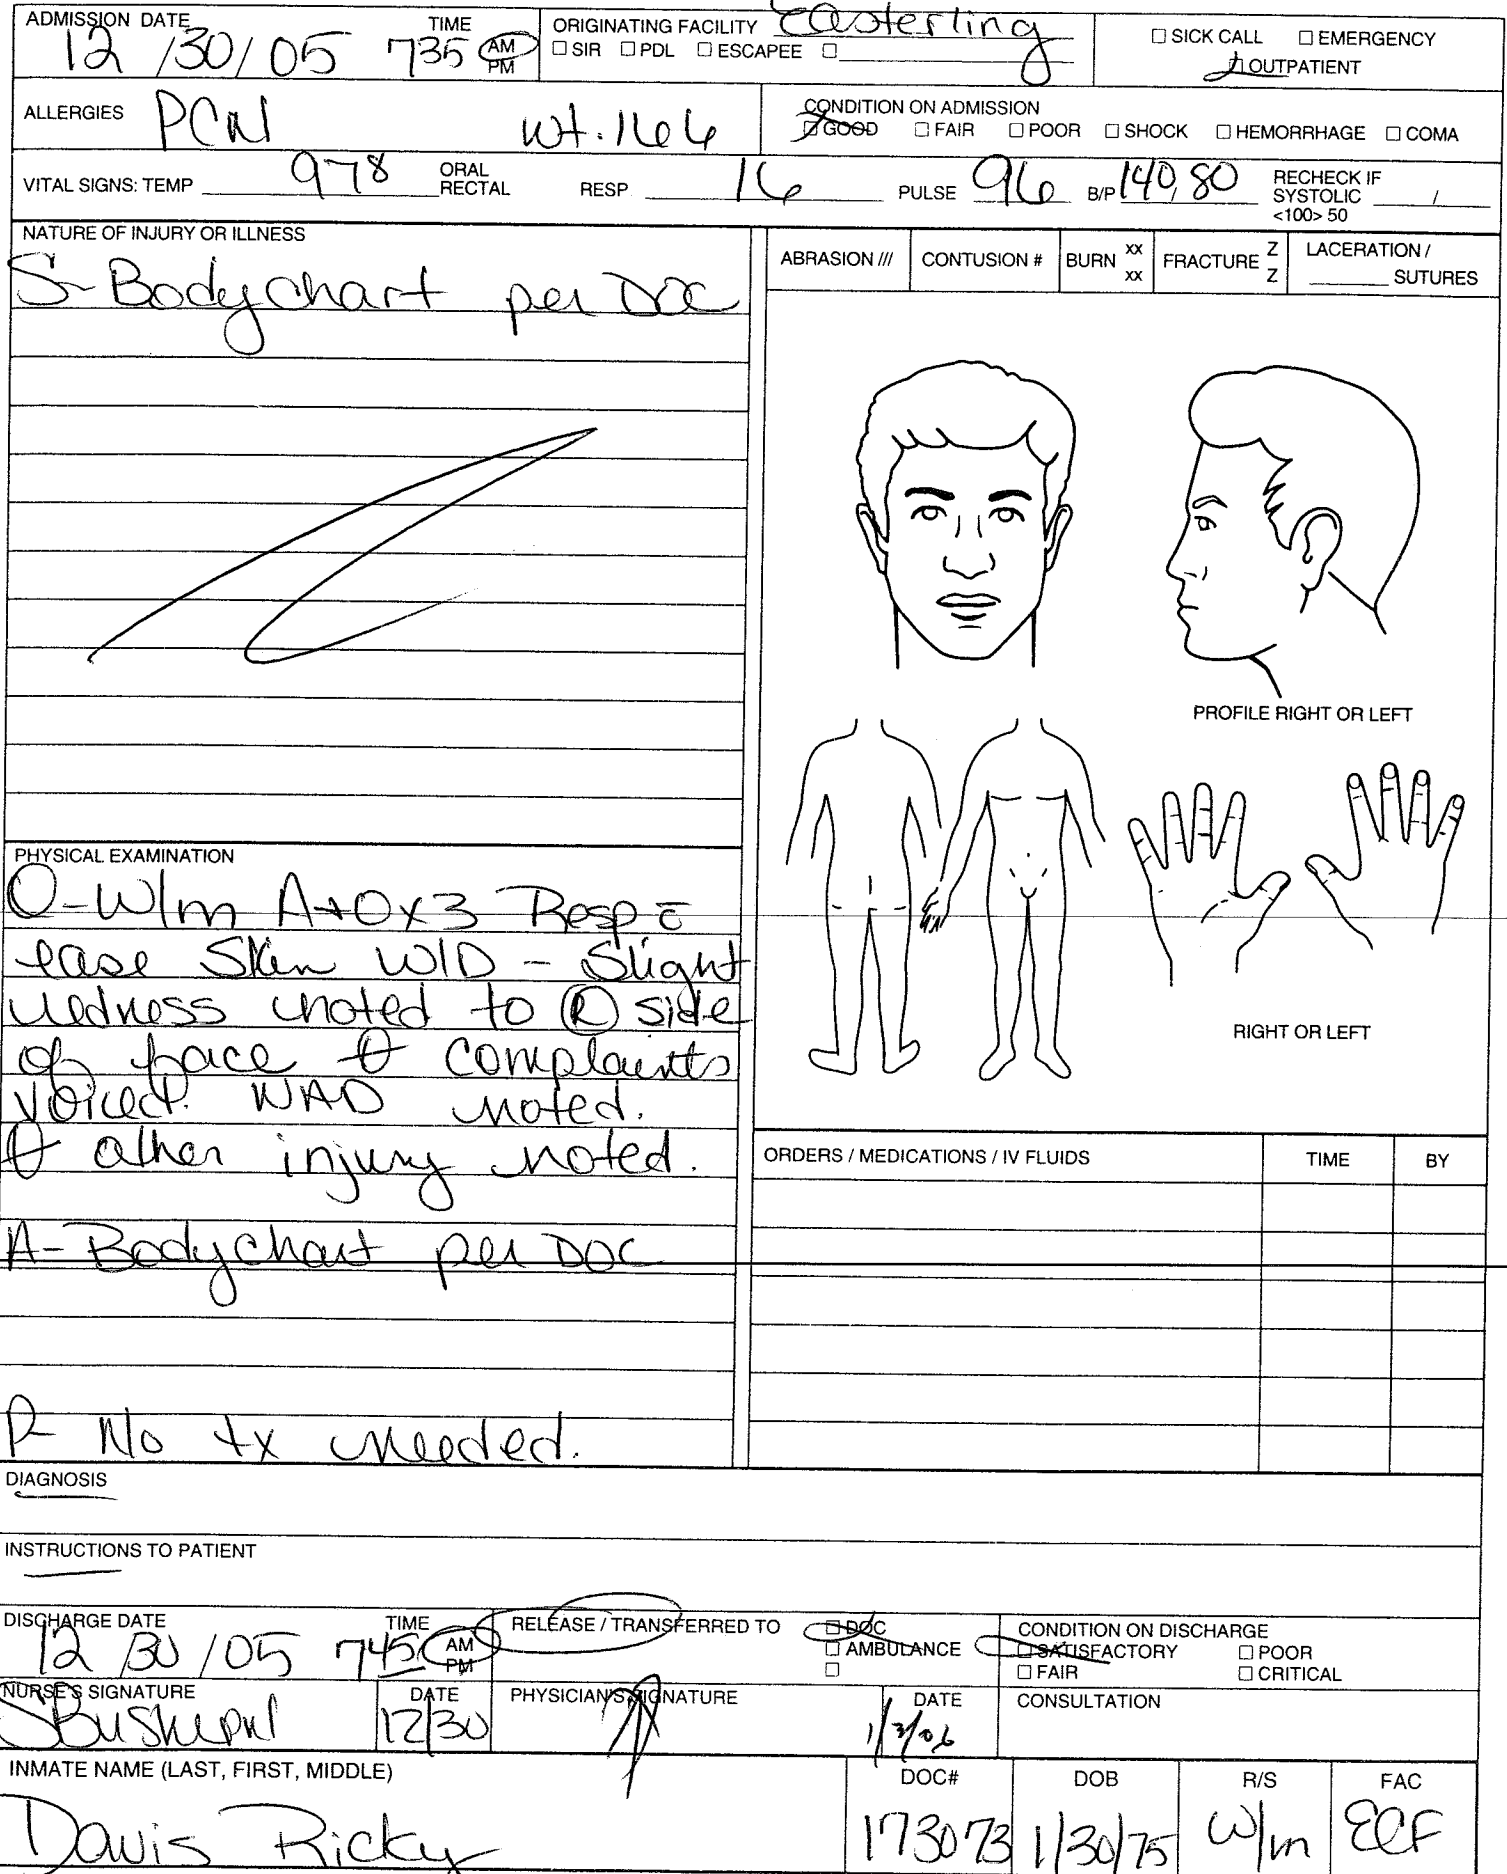 ADMISSION DATE TIME ORIGINATING FACILITY Easterling
12 /30/ 05 735 AM PM
☐ SIR ☐ PDL ☐ ESCAPEE ☐
☐ SICK CALL ☐ EMERGENCY
☐ OUTPATIENT
ALLERGIES PCN wt. 166
CONDITION ON ADMISSION
☐ GOOD ☐ FAIR ☐ POOR ☐ SHOCK ☐ HEMORRHAGE ☐ COMA
VITAL SIGNS: TEMP 978 ORAL RECTAL RESP 16 PULSE 96 B/P 140, 80 RECHECK IF SYSTOLIC <100> 50 /
NATURE OF INJURY OR ILLNESS
S- Body chart per DOC
ABRASION /// CONTUSION # BURN xx xx FRACTURE Z Z LACERATION / SUTURES
PROFILE RIGHT OR LEFT
RIGHT OR LEFT
PHYSICAL EXAMINATION
O- W/m A+Ox3 Resp c̄
ease Skin W/D - Slight
redness noted to Ⓡ side
of face θ complaints
voiced. NAD noted.
θ other injury noted.
A- Body chart per DOC
P- No tx needed.
ORDERS / MEDICATIONS / IV FLUIDS TIME BY
DIAGNOSIS
INSTRUCTIONS TO PATIENT
DISCHARGE DATE TIME
12 /30 /05 745 AM PM
RELEASE / TRANSFERRED TO ☐ DOC
☐ AMBULANCE
☐
CONDITION ON DISCHARGE
☐ SATISFACTORY ☐ POOR
☐ FAIR ☐ CRITICAL
NURSE'S SIGNATURE DATE PHYSICIAN'S SIGNATURE DATE CONSULTATION
12/30 1/3/06
INMATE NAME (LAST, FIRST, MIDDLE) DOC# DOB R/S FAC
Davis Ricky 173073 1/30/75 W/m ECF